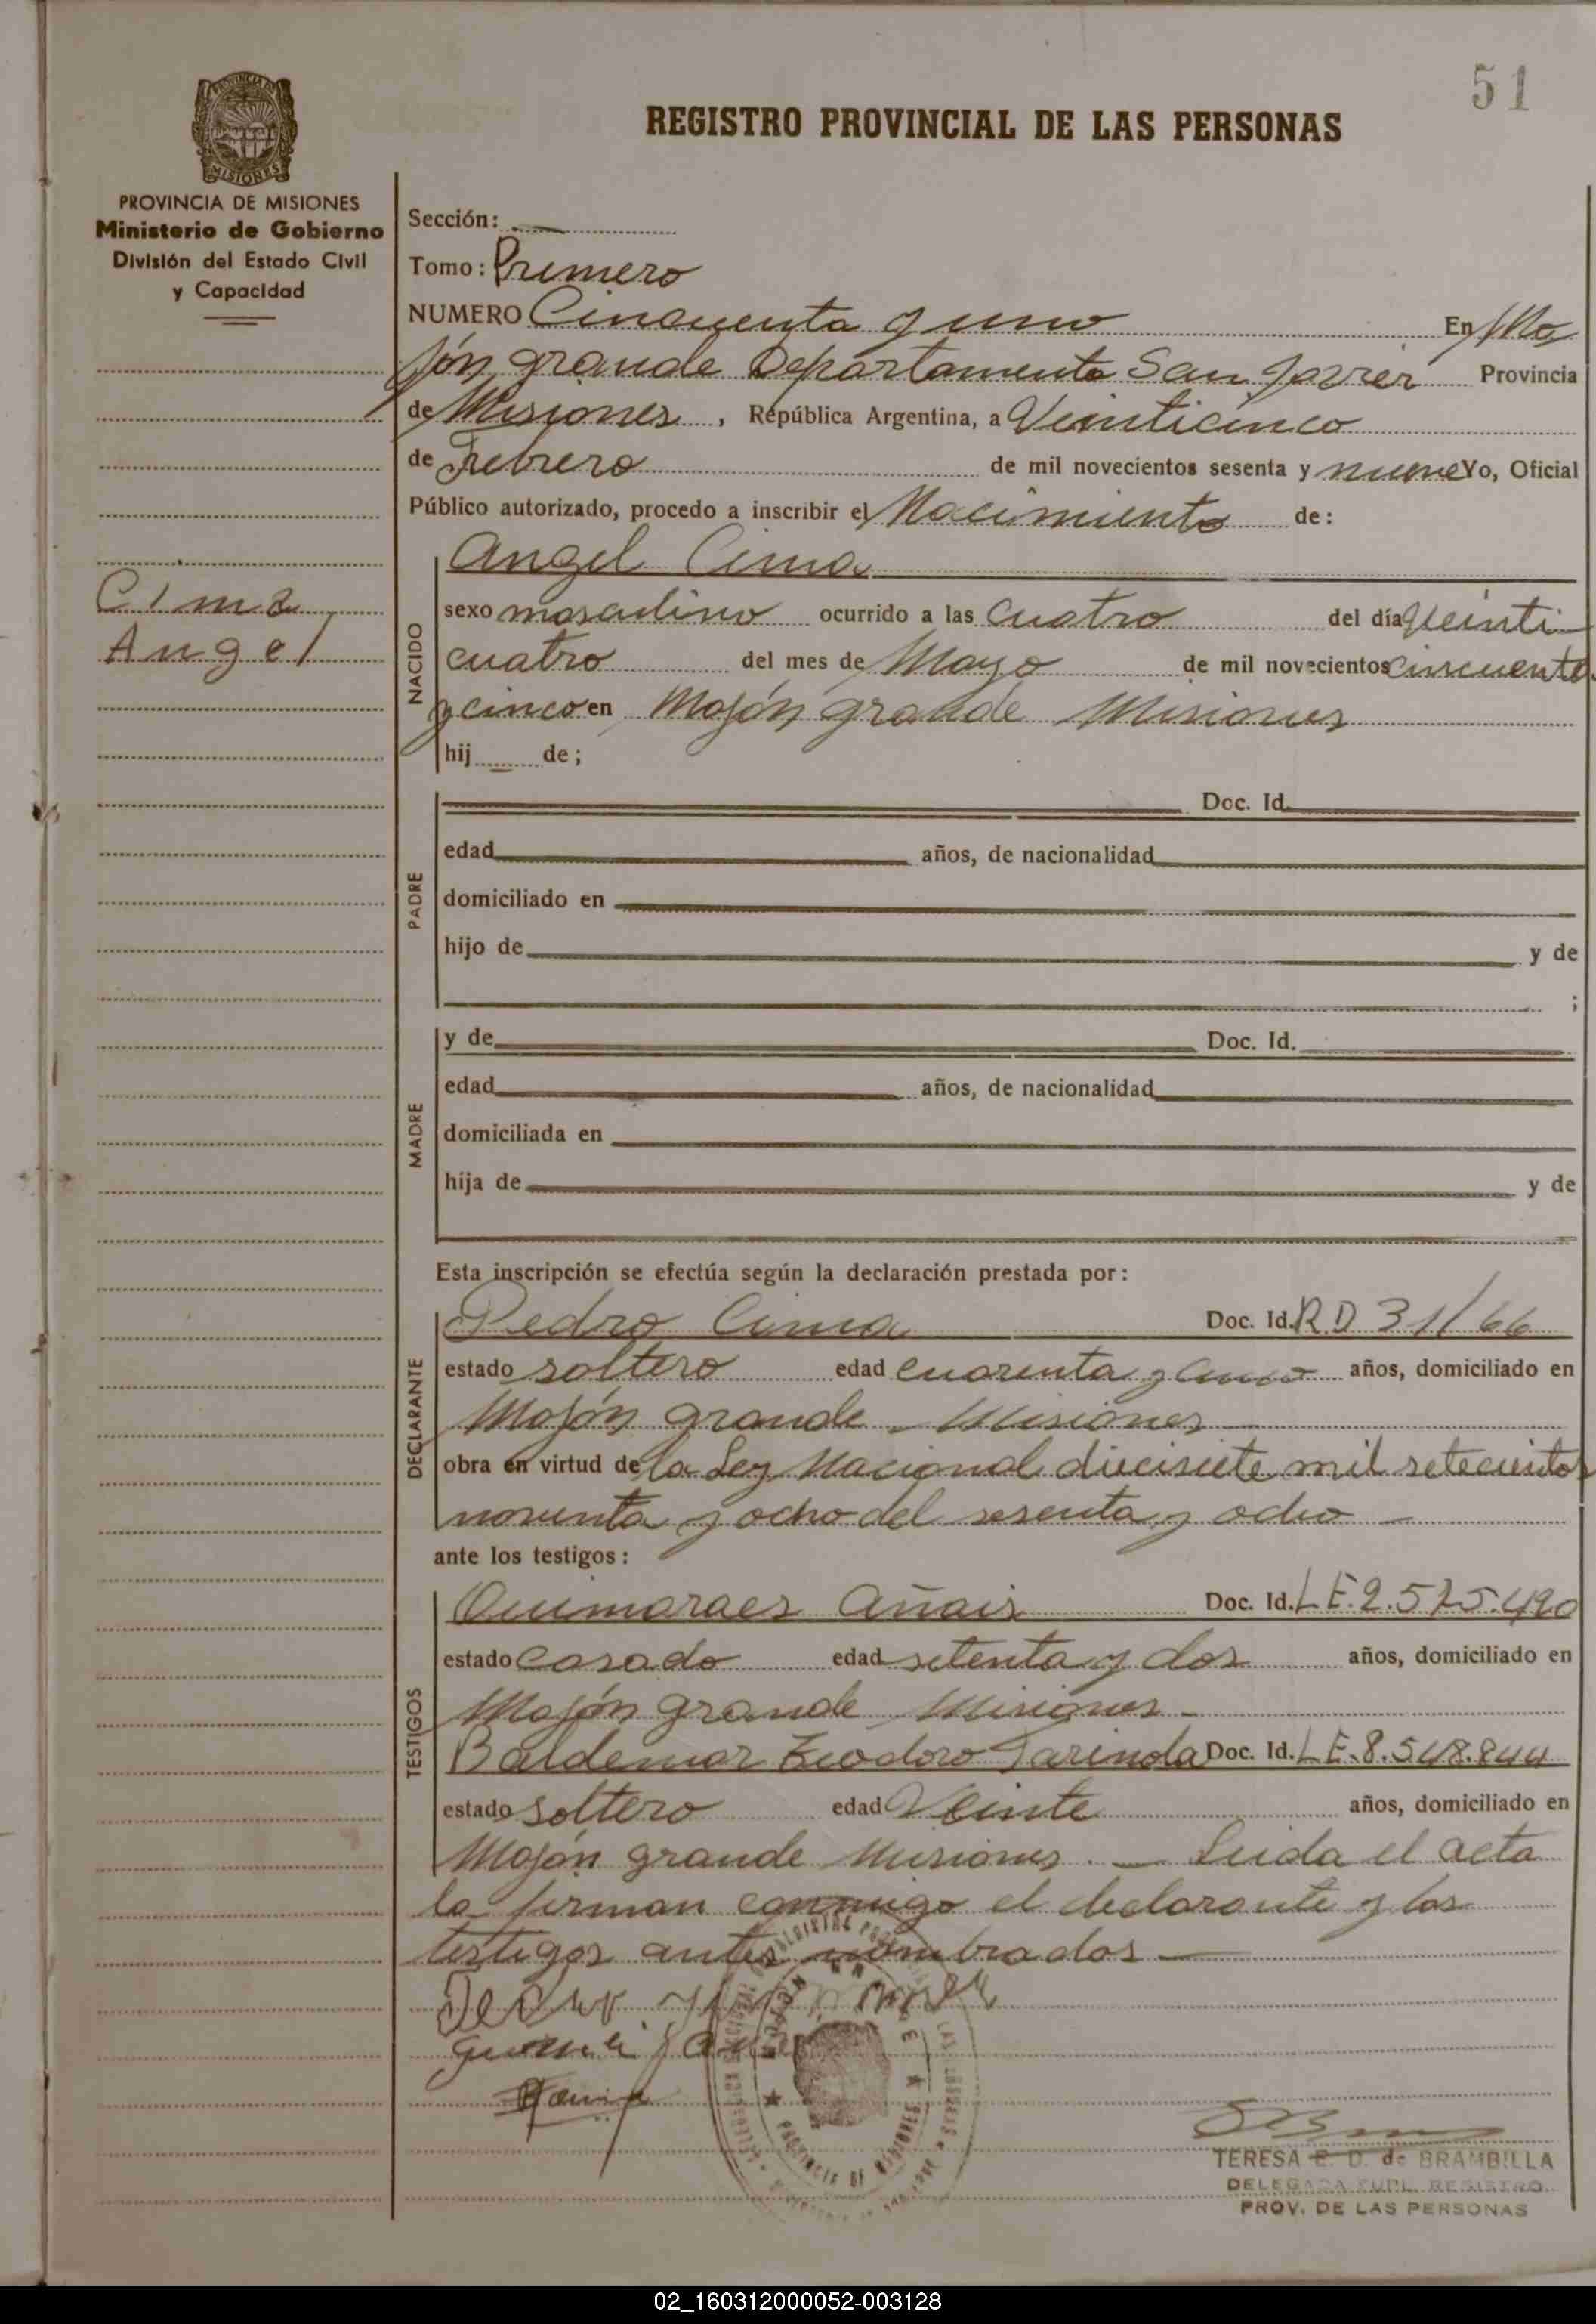 51
REGISTRO PROVINCIAL DE LAS PERSONAS
PROVINCIA DE MISIONES
MISIONES
PROVINCIA DE MISIONES
Ministerio de Gobierno
División del Estado Civil
y Capacidad
Cima
Angel
Sección:
Tomo: Primero
NUMERO Cincuenta y uno En Mo
jón grande Departamento San Javier Provincia
de Misiones, República Argentina, a Veinticinco
de Febrero de mil novecientos sesenta y nueve Yo, Oficial
Público autorizado, procedo a inscribir el Nacimiento de:
NACIDO
Angel Cima
sexo masculino ocurrido a las cuatro del día Veinti
cuatro del mes de Mayo de mil novecientos cincuenta
y cinco en Mojón grande Misiones
hij de;
PADRE
Doc. Id.
edad años, de nacionalidad
domiciliado en
hijo de y de
;
MADRE
y de Doc. Id.
edad años, de nacionalidad
domiciliada en
hija de y de
Esta inscripción se efectúa según la declaración prestada por:
DECLARANTE
Pedro Cima Doc. Id. R.D 31/66
estado soltero edad cuarenta y años, domiciliado en
Mojón grande - Misiones
obra en virtud de la Ley Nacional diecisiete mil setecientos
noventa y ocho del sesenta y ocho -
ante los testigos:
TESTIGOS
Guimaraes Añais Doc. Id. LE. 2.575.490
estado casado edad setenta y dos años, domiciliado en
Mojón grande Misiones -
Baldemar Teodoro Tarinola Doc. Id. LE. 8.548.844
estado soltero edad Veinte años, domiciliado en
Mojón grande Misiones. - Leida el acta
la firman conmigo el declarante y los
testigos antes nombrados -
MOJON GRANDE
PROVINCIA DE MISIONES
TERESA E. D. de BRAMBILLA
DELEGADA SUPL. REGISTRO
PROV. DE LAS PERSONAS
02_160312000052-003128